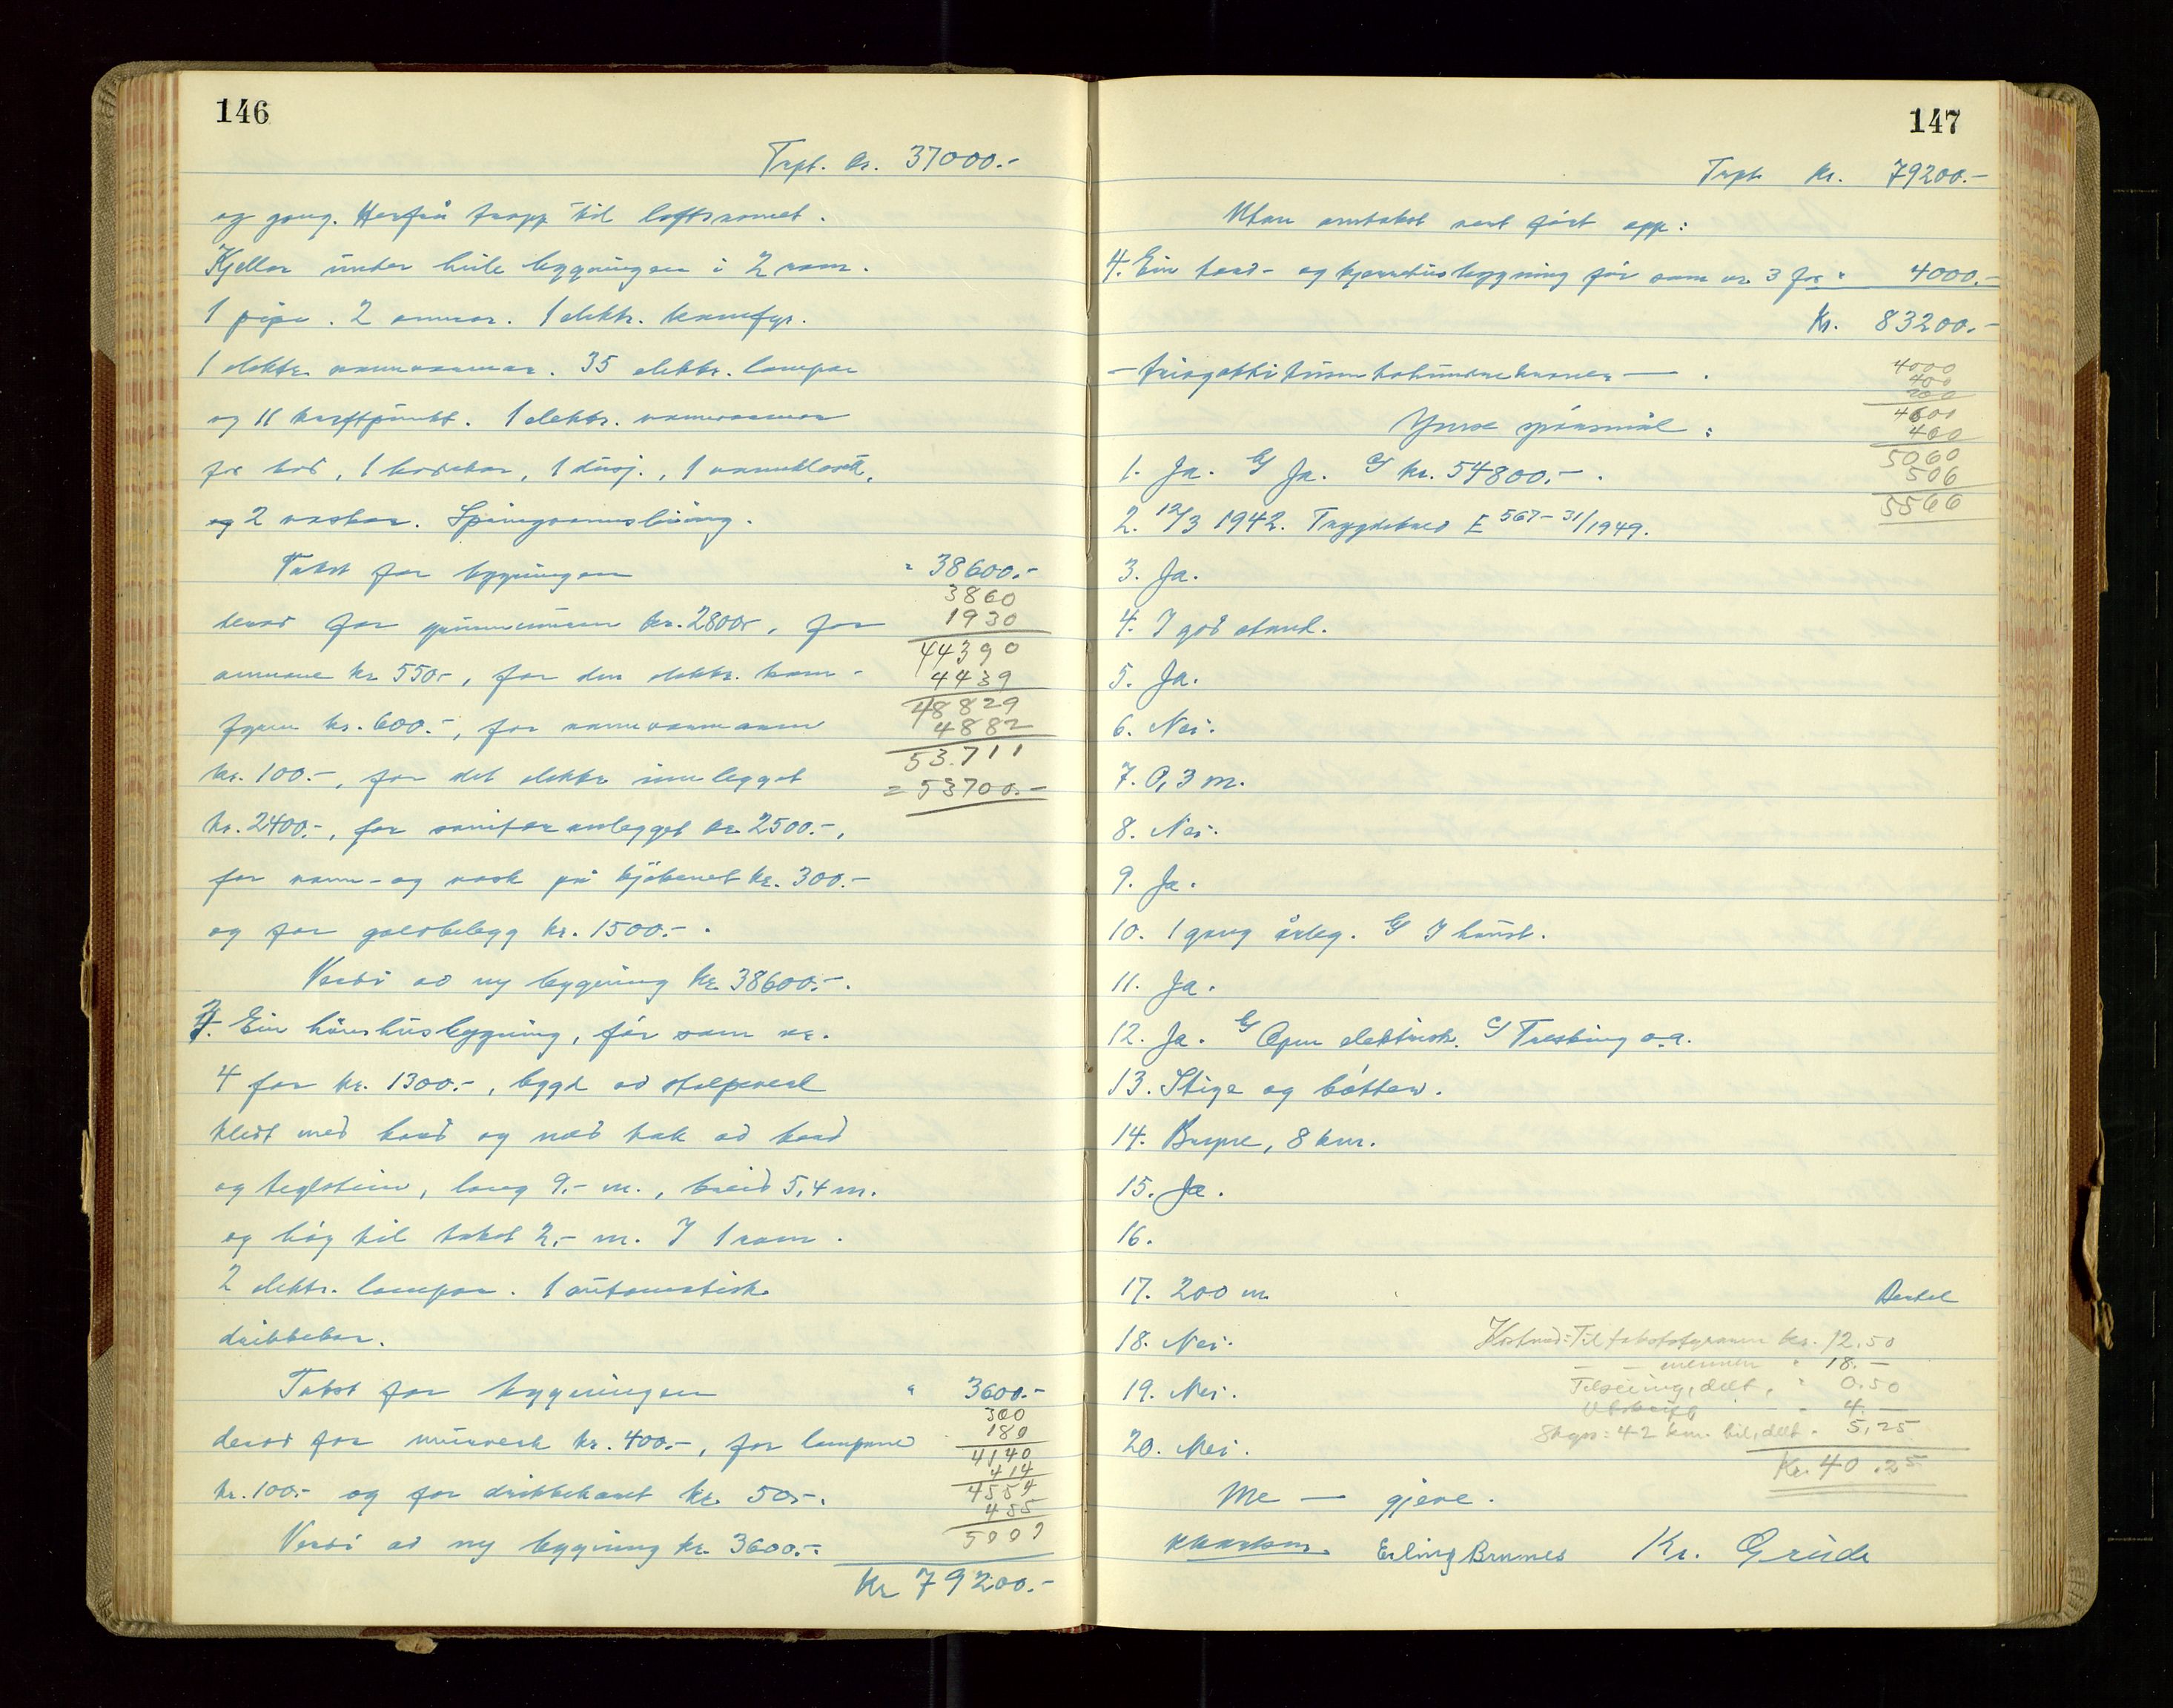 146
Trpt. kr. 37000.-
og gong. Herfrå tropp til loftsromet.
Kjellar under heile bygningen i 2 rom.
1 pipe. 2 omnar. 1 elektr. komfyr.
1 elektr. varmeomnar. 35 elektr. lampar
og 11 kraftpunkt. 1 elektr. varmeomnar
for bad, 1 badekar, 1 dusj., 1 vannklosett,
og 2 vaskar. Springvannsleiing.
Takst for bygningen " 38600.-
3860
derav for grunnmuren kr. 2800.-, for 1930
44390
omnane kr. 550.-, for den elektr. kom- 4439
48829
fyren kr. 600.-, for varmeomnane 4882
53.711
kr. 100.-, for det elektr. innlegget = 53700.-
kr. 2400.-, for sanitæranlegget kr. 2500.-,
for vann- og vask på kjökenet kr. 300.-
og for golvbelegg kr. 1500.-.
Verdi av ny bygning kr. 38600.-.
3. Ein hönshusbygning, för som nr.
4 for kr. 1300.-, bygd av stolpeverk
kledt med bord og med tak av bord
og teglstein, lang 9.- m., breid 5,4 m.
og høg til taket 2,- m. I 1 rom.
2 elektr. lampar. 1 automatisk
drikkekar.
Takst for bygningen " 3600.-
360
180
derav for murverk kr. 400.-, for lampane 4140
414
kr. 100.- og for drikkekaret kr. 50.-. 4554
455
Verdi av ny bygning kr. 3600.-. 5009
Kr 79200.-
147
Trpt. kr. 79200.-
Utan omtakst vert fört opp:
4. Ein - og kjerrehusbygning för som nr. 3 for " 4000.-
Kr. 83200.-
4000
400
200
4600
460
5060
506
5566
Ymse spörsmål:
1. Ja. Ja. kr. 54800.-.
2. 12/3 1942. Trygdebrev E 567-31/1949.
3. Ja.
4. I god stand.
5. Ja.
6. Nei.
7. 0,3 m.
8. Nei.
9. Ja.
10. 1 gong årleg. I haust.
11. Ja.
12. Ja. Open elektrisk. Tresking o.a.
13. Stige og bötter.
14. Bryne, 8 km.
15. Ja.
16.
17. 200 m.
18. Nei.
Kostnad: Til takststyraren kr. 12.50
— — mennene " 18.-
19. Nei.
Telseiing, delt, " 0.50
Utskrift — " 4.-
Skyss: 42 km. bil, delt " 5,25
20. Nei.
Kr. 40.25
Me — gjeve.
Erling Brunes Kr. Grude